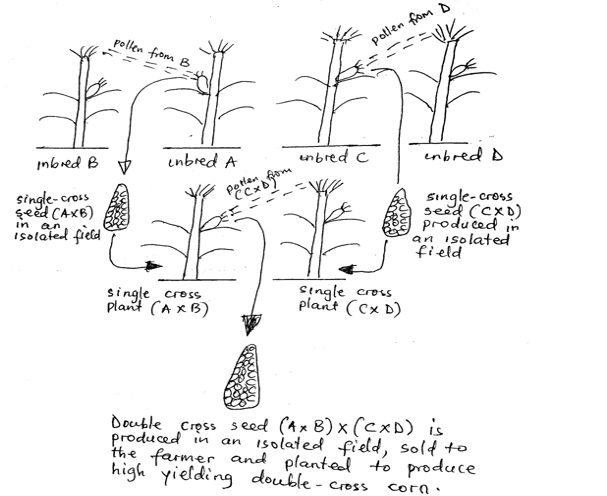 pollen from B
pollen from D
inbred B
inbred A
inbred C
inbred D
single-cross
seed (AxB)
in an
isolated field
pollen from
(CxD)
single-cross
seed (CxD)
produced in
an isolated
field
single cross
plant (AxB)
single cross
plant (CxD)
Double cross seed (AxB)x(CxD) is
produced in an isolated field, sold to
the farmer and planted to produce
high yielding double-cross corn.